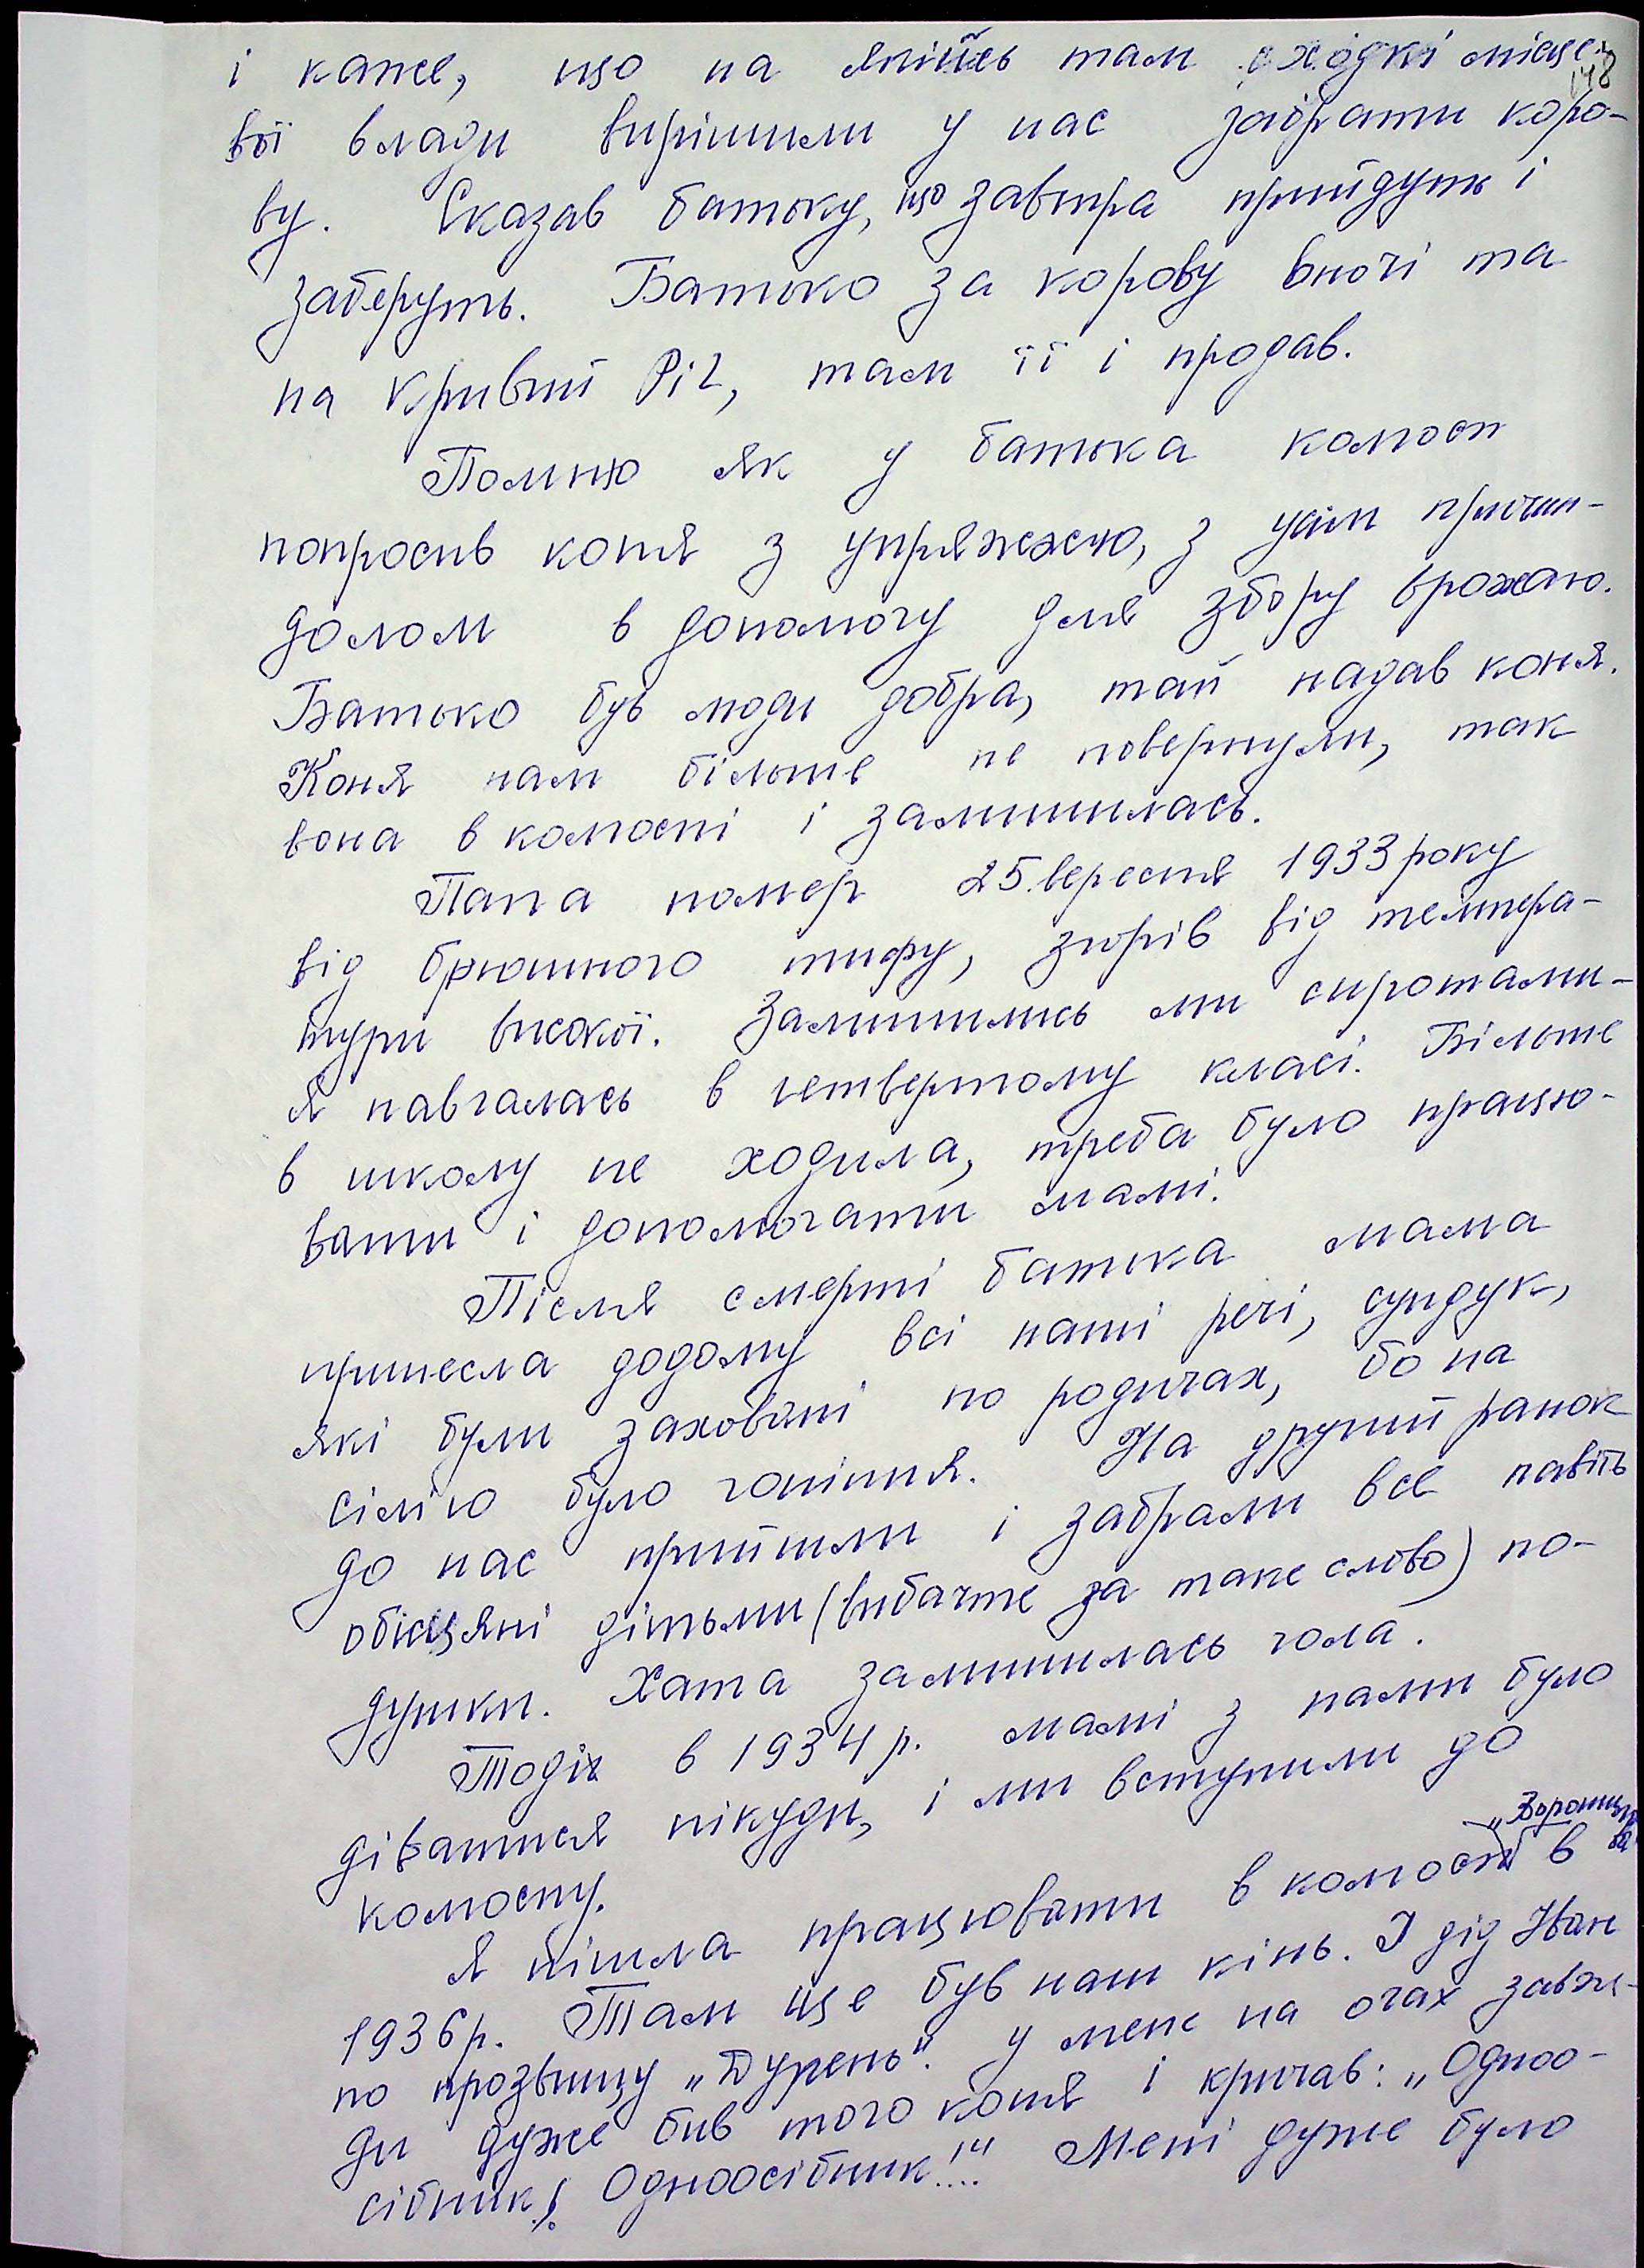 і каже, що на якійсь там сходкі місце-
148
вої влади вирішили у нас забрати коро-
ву. Сказав батьку, що завтра прийдуть і
заберуть. Батько за корову вночі та
на Кривий Ріг, там її і продав.
Помню як у батька колгосп
попросив коня з упряжжею, з усім причин-
долом в допомогу для збору врожаю.
Батько був люди добра, тай надав коня.
Коня нам більше не повернули, так
вона в колгоспі і залишилась.
Папа помер 25.вересня 1933 року
від брюшного тифу, згорів від темпера-
тури високої. Залишились ми сиротами-
я навчалась в четвертому класі. Більше
в школу не ходила, треба було працю-
вати і допомогати мамі.
Після смерті батька мама
принесла додому всі наші речі, сундук,
які були заховані по родичах, бо на
сім'ю було гоніння. На другий ранок
до нас прийшли і забрали все навіть
обісцяні дітьми (вибачте за таке слово) по-
душки. Хата залишилась гола.
Тоді в 1934 р. мамі з нами було
діватися нікуди, і ми вступили до
колгоспу.
„Воронцовка
Я пішла працювати в колгосп в
1936р. Там ще був наш кінь. І дід Іван
по прозвищу „Дурень". У мене на очах завж-
ди дуже бив того коня і кричав: „Одноо-
сібник! Одноосібник!..." Мені дуже було